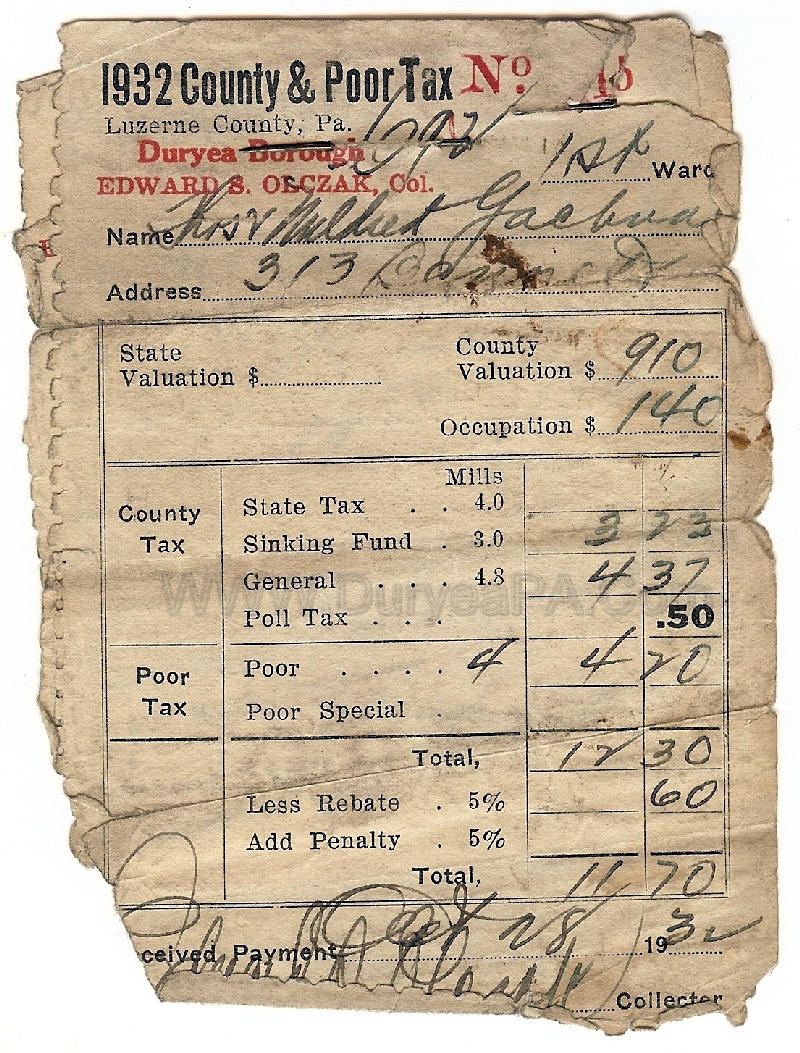 1932 County & Poor Tax No 15
Luzerne County, Pa.
Duryea Borough
EDWARD S. OLCZAK, Col.
1st Ward
Name Mrs Mildred
Address 313
State
Valuation $
County
Valuation $ 910
Occupation $ 140
Mills
County Tax
State Tax . . 4.0
Sinking Fund . 3.0 3 23
General . . . 4.8 4 37
Poll Tax . . . .50
Poor Tax
Poor . . . . 4 4 20
Poor Special .
Total, 12 30
Less Rebate . 5% 60
Add Penalty . 5%
Total, 11 70
ceived Payment Oct 28 1932
Collector
www.DuryeaPA.com